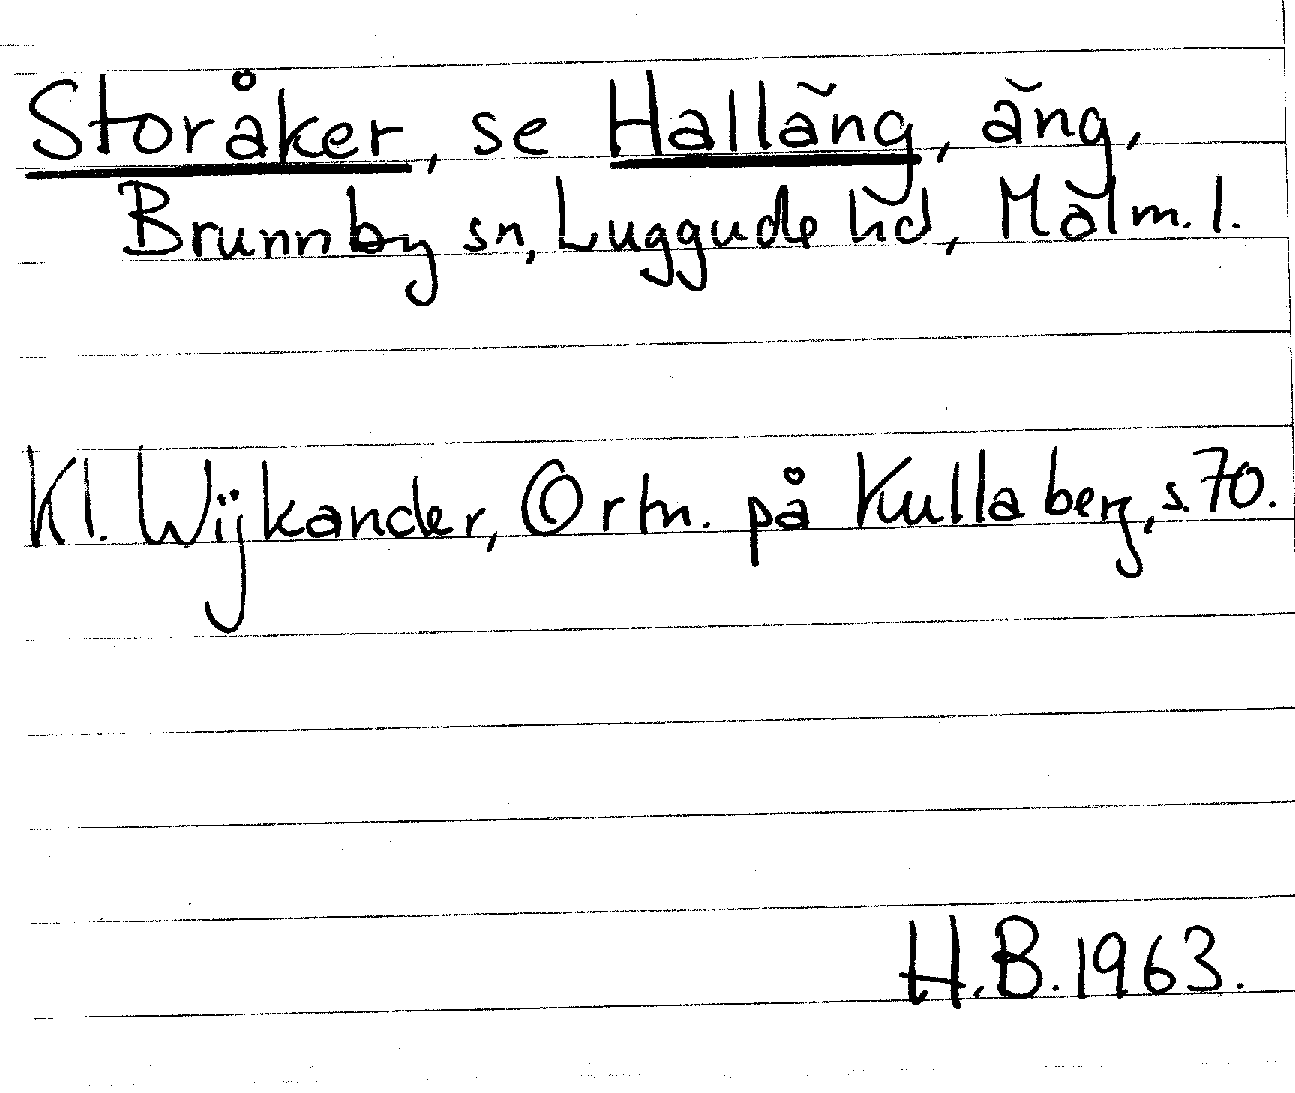 Storåker, se Halläng, äng,
Brunnby sn, Luggude hd, Malm. l.
Kl. Wijkander, Ortn. på Kullaberg, s. 70.
H.B. 1963.